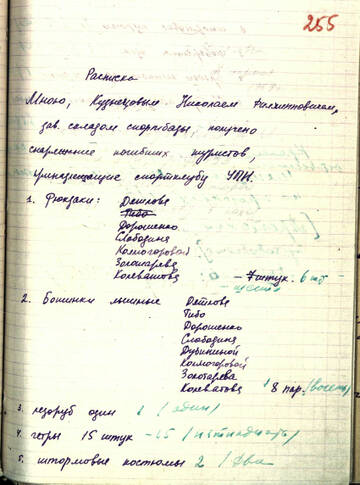 255
Расписка
Мною, Кузнецовым Николаем Филипповичем,
зав. складом спортбазы, получено
снаряжение погибших туристов,
принадлежащие спортклубу УПИ.
1. Рюкзаки: Дятлова
Тибо
Дорошенко
Слободина
Колмогоровой
Золотарева
Колеватова - 7 штук. 6 шт
2. Ботинки лыжные Дятлова
Тибо
Дорошенко
Слободина
Дубининой
Колмогоровой
Золотарева
Колеватова 8 пар. /восемь/
3. ледоруб один 1 /один/
4. гетры 15 штук - 15 /пятнадцать/
5. штормовые костюмы 2 /два